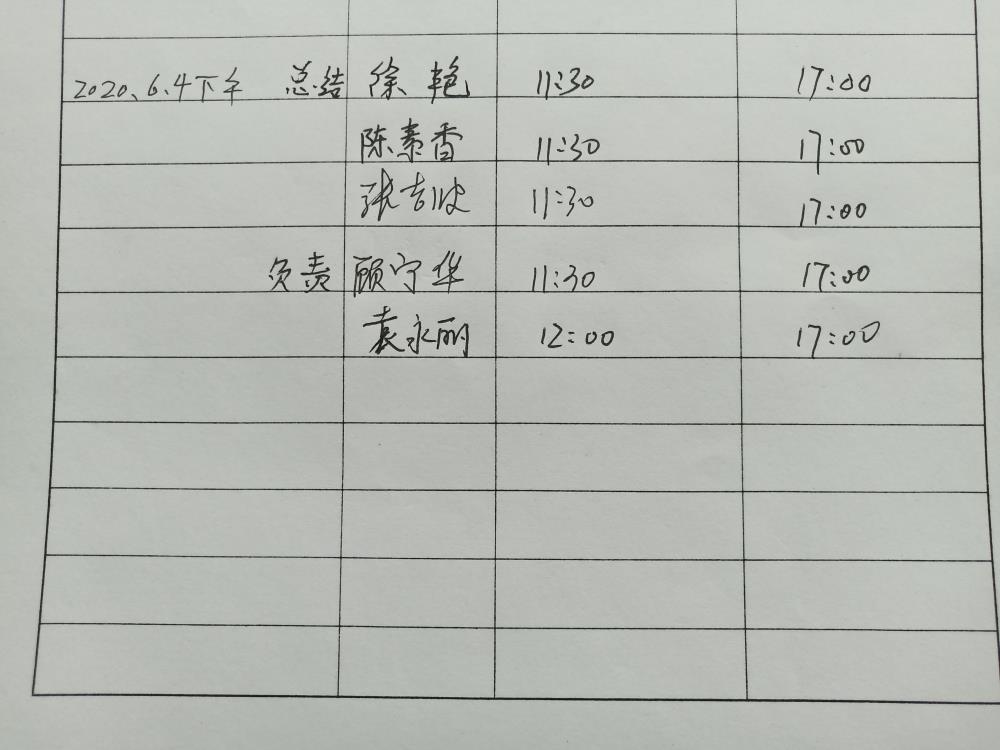 2020.6.4下午 总结 徐艳 11:30 17:00
陈素香 11:30 17:00
张吉波 11:30 17:00
负责 顾宁华 11:30 17:00
袁永丽 12:00 17:00